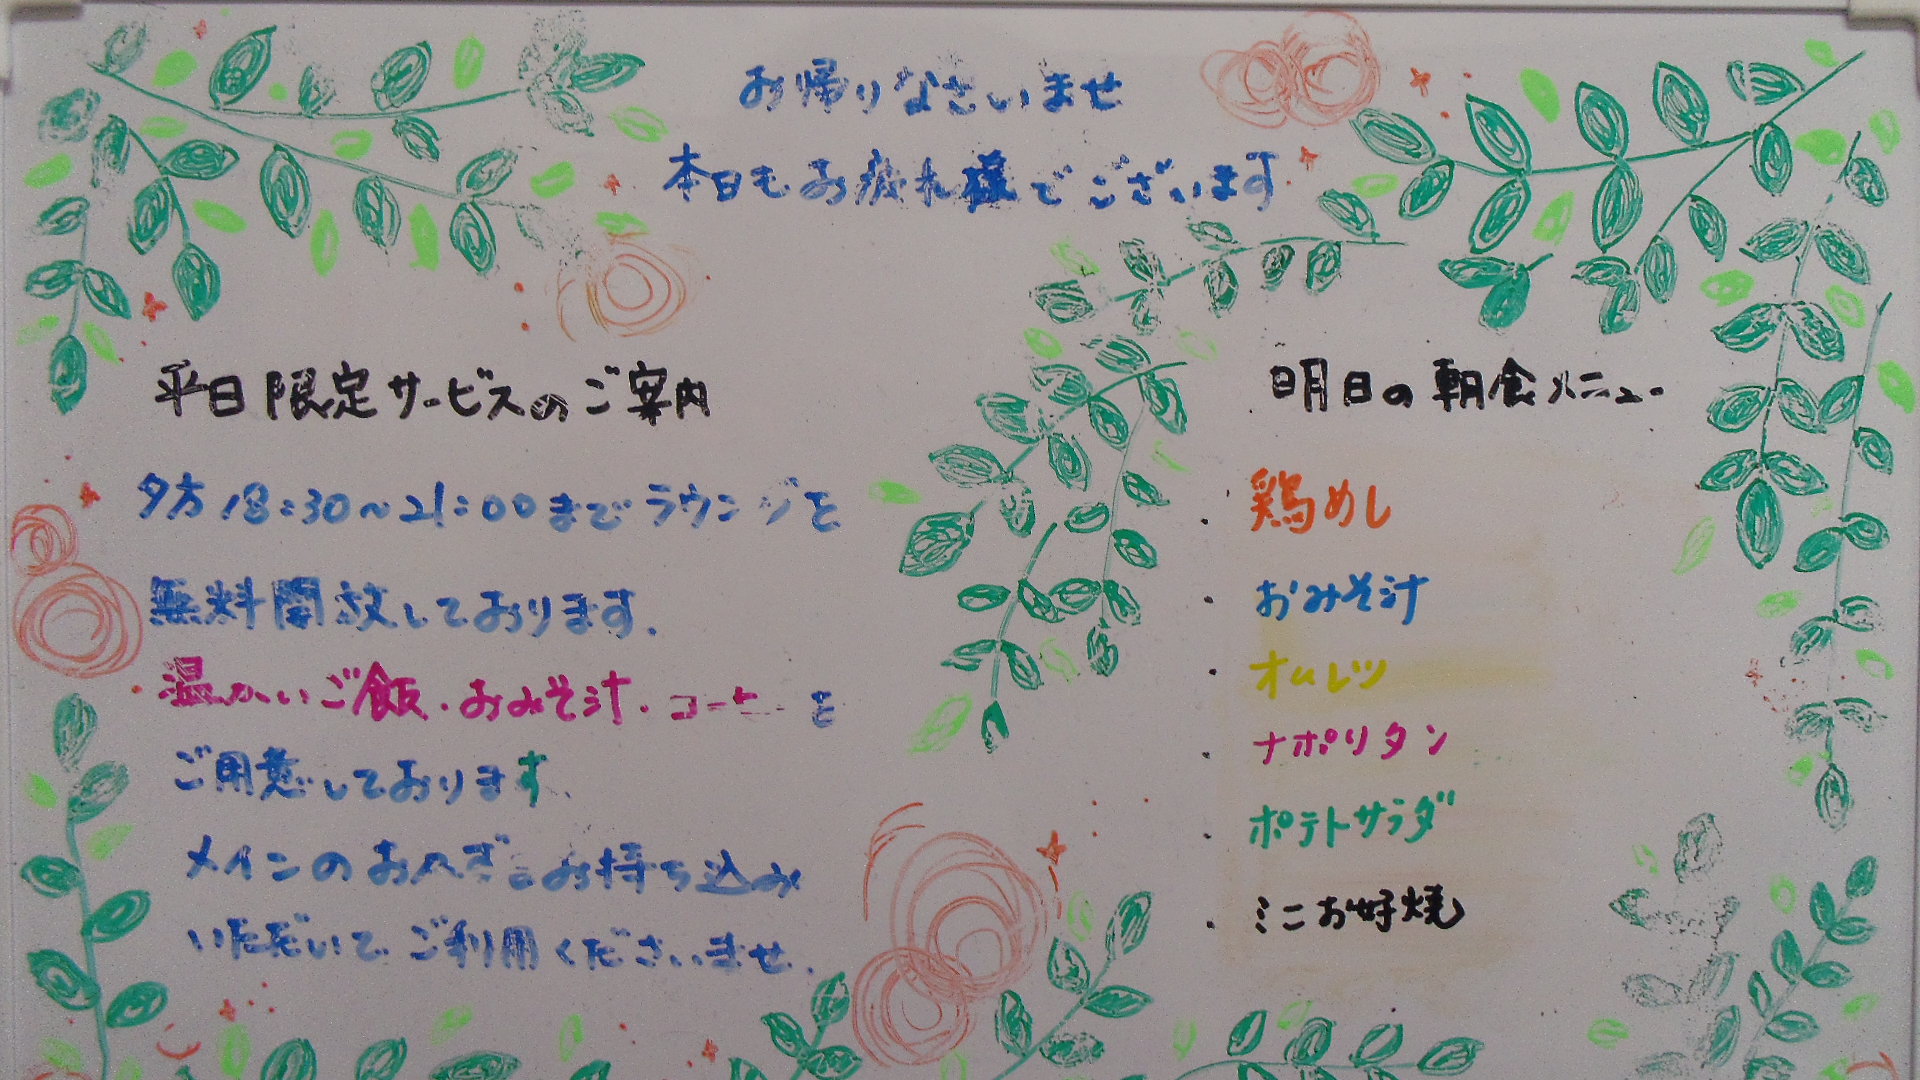 お帰りなさいませ
本日もお疲れ様でございます
平日限定サービスのご案内
夕方18:30~21:00までラウンジを
無料開放しております.
温かいご飯・おみそ汁・コーヒーを
ご用意しております.
メインのおかずをお持ち込み
いただいて ご利用くださいませ.
明日の朝食メニュー
・鶏めし
・おみそ汁
・オムレツ
・ナポリタン
・ポテトサラダ
・ミニお好焼